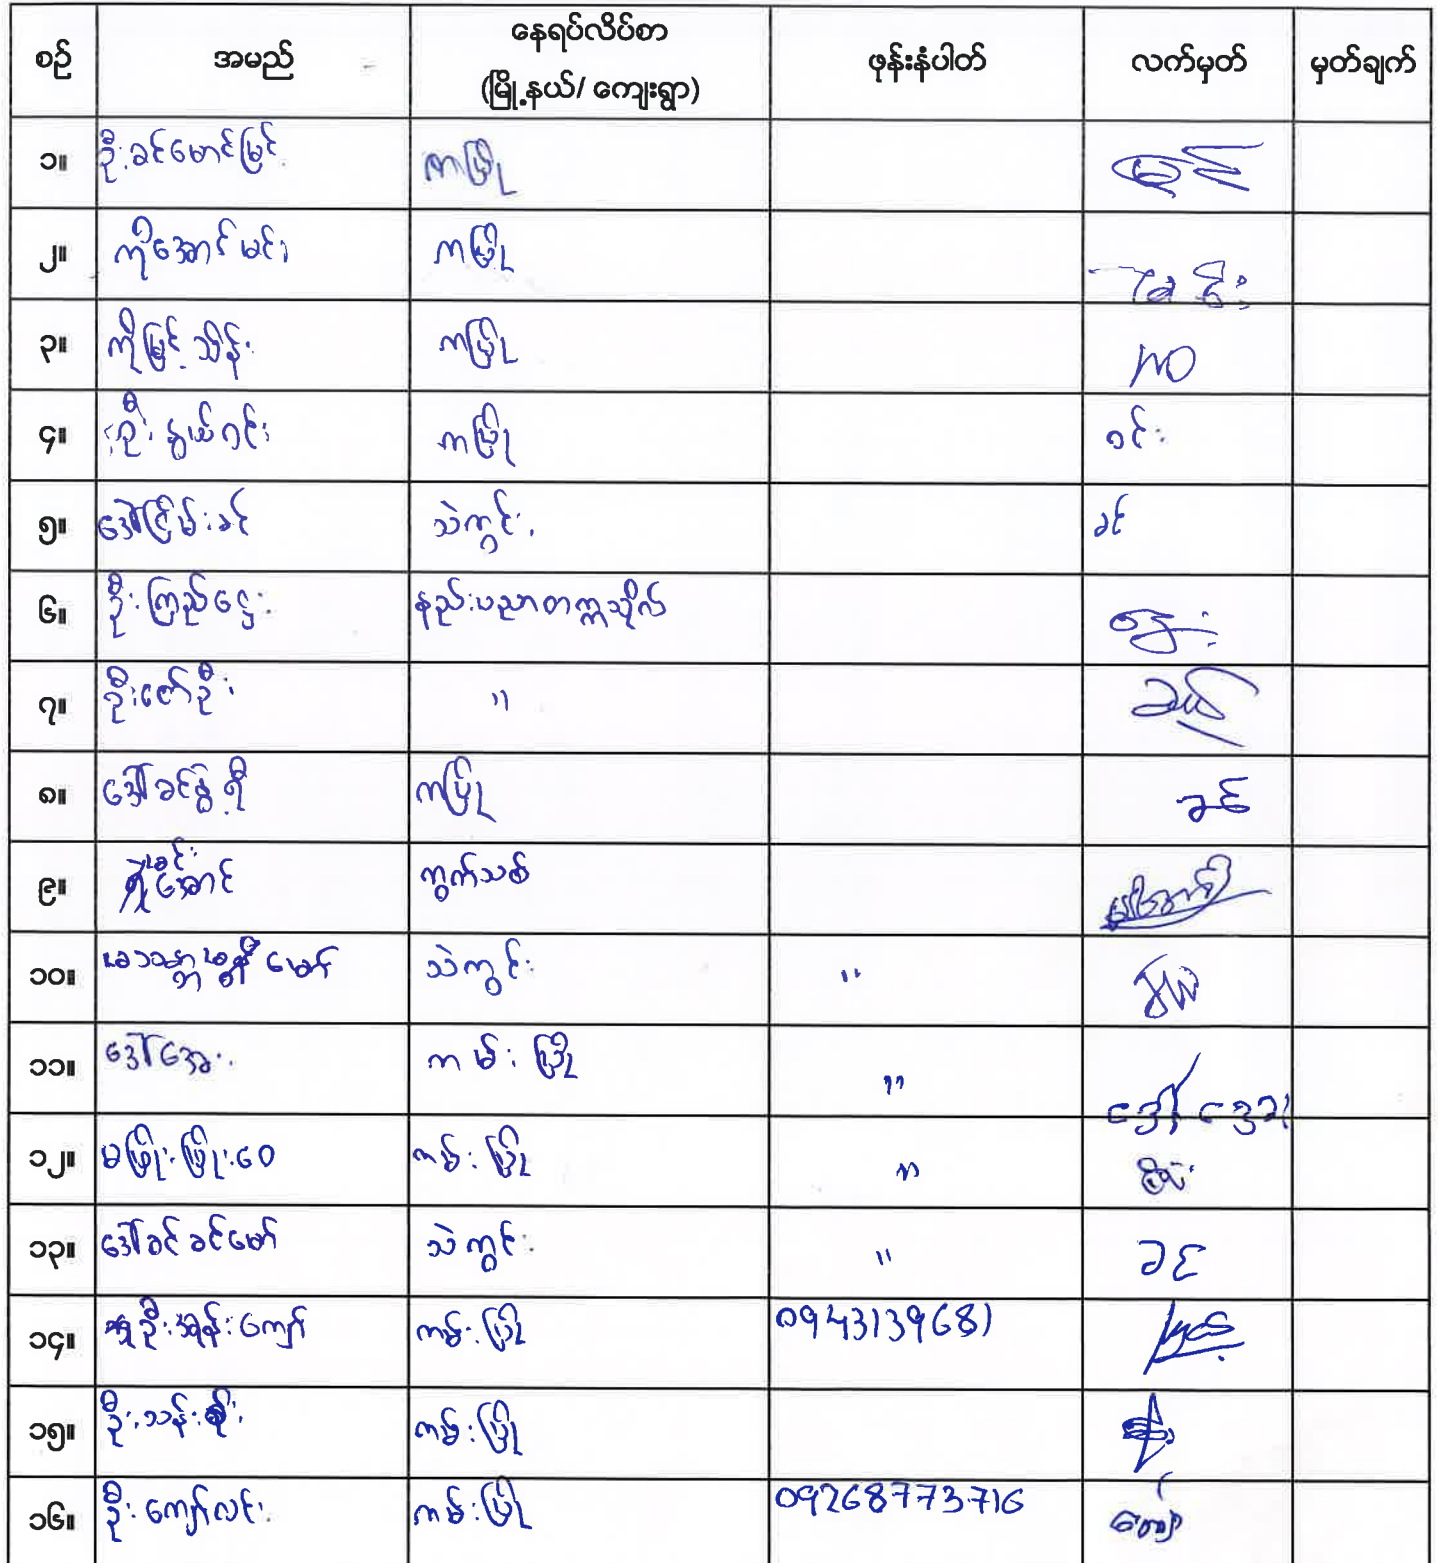 စဉ် အမည် နေရပ်လိပ်စာ (မြို့နယ်/ ကျေးရွာ) ဖုန်းနံပါတ် လက်မှတ် မှတ်ချက်
၁။ ဦးခင်မောင်မြင့် ကပြို
၂။ ကိုအောင်မင်း ကပြို
၃။ ကိုမြင့်သိန်း ကပြို
၄။ ဦးနွယ်ဝင်း ကပြို ဝင်း
၅။ ဒေါ်ငြိမ်းခင် သဲကွင်း ခင်
၆။ ဦးကြည်ဌေး နည်းပညာတက္ကသိုလ်
၇။ ဦးဇော်ဦး "
၈။ ဒေါ်ခင်နွဲ့ရီ ကပြို ခင်
၉။ အောင် ကွက်သစ်
၁၀။ မော် သဲကွင်း "
၁၁။ ဒေါ်အေး ကမ်းပြို "
၁၂။ မဖြိုးဖြိုးဝေ ကမ်းပြို "
၁၃။ ဒေါ်ခင်ခင်မော် သဲကွင်း " ခင်
၁၄။ ဦးထွန်းကျော် ကမ်းပြို 0943139681
၁၅။ ဦးသန်းစိုး ကမ်းပြို
၁၆။ ဦးကျော်လင်း ကမ်းပြို 09268773716 ကျော်